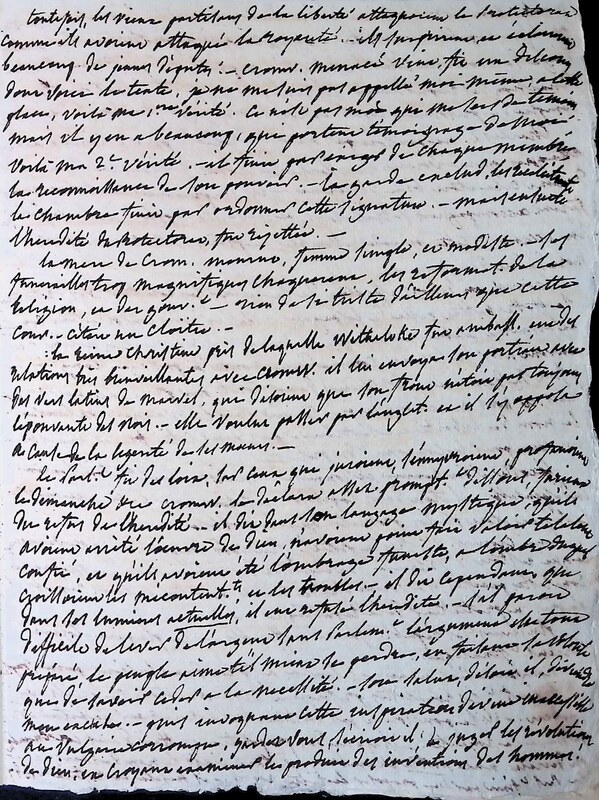 toutefois, les vieux partisans de la liberté attaquoient le Protectorat
comme ils avoient attaqué la Royauté. - ils surprirent, et
beaucoup de jeunes députés. - Cromw. menacé vint, fit un discours
dont voici le texte, je ne me suis pas appellé moi même, à cette
place, voilà ma 1re vérité. Ce n'est pas moi qui me sers de témoin
mais il y en a beaucoup, qui portent témoignage de moi
Voilà ma 2e vérité. - il finit par exiger de chaque membre
la reconnoissance de son pouvoir. - la garde exclud les
la chambre finit par ordonner cette signature. - mais ensuite
l'heredité du Protectorat, fut rejettée. -
la mere de Crom. mourut, femme simple, et modeste. - ses
funerailles trop magnifiques choquerent, les reformat. de la
religion, et du gouv.t - rien de si triste d'ailleurs que cette
Cour. - c'etoit un cloitre. -
la reine Christine près de laquelle Witheloke fut ambass. eut des
relations très bienveillantes avec Cromw. il lui envoya son portrait avec
des vers latins de Marvel, qui disoient que son front n'étoit pas toujours
l'épouvante des rois. - elle voulut passer par l'anglet. et il s'y opposa
à cause de la legereté de ses mœurs. -
le Parl.t fit des loix, sur ceux qui juroient, s'ennyvroient, profanoient
le dimanche et Cromw. le declara assez prompt.t dissous, furieux
du refus de l'heredité. - il dit dans son langage mystique, qu'ils
avoient arrêté l'œuvre de dieu, n'avoient point fait valoir le talent
confié, et qu'ils avoient été l'ombrage funeste, à l'ombre duquel
croissoient les mecontent.ts et les troubles. - il dit cependant que
dans ses lumieres actuelles, il eut refusé l'heredité. - s'il paroit
difficile de lever de l'argent sans Parlem.t l'argument est tout
preparé, le peuple aime t'il mieux se perdre, en faisant sa volonté
que de savoir ceder à la necessité. - son salut, disoit il,
mon excuse. - puis invoquant cette inspiration divine
au vulgaire corrompu, gardez vous, s'ecrioit il, de juger les révolutions
de dieu, en croyant examiner les produits des inventions des hommes.